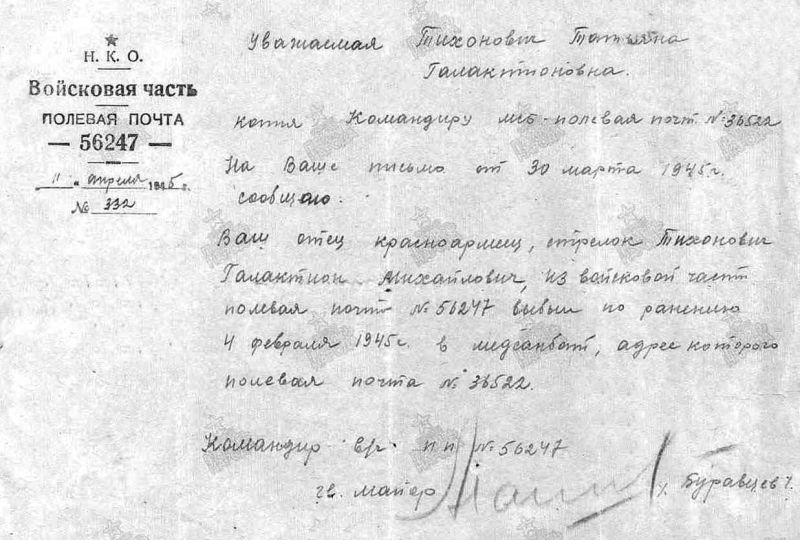 Н. К. О.
Войсковая часть
ПОЛЕВАЯ ПОЧТА
— 56247 —
"11" апреля 1945 г.
№ 332
Уважаемая Тихонович Татьяна
Галактионовна.
копия Командиру мсб - полевая почт № 36522
На Ваше письмо от 30 марта 1945 г.
сообщаю:
Ваш отец красноармеец, стрелок Тихонович
Галактион Михайлович, из войсковой част
полевая почт № 56247 выбыл по ранению
4 февраля 1945 г. в медсанбат, адрес которого
полевая почта № 36522.
Командир в/ч п п № 56247
гв. майор
Буравцев